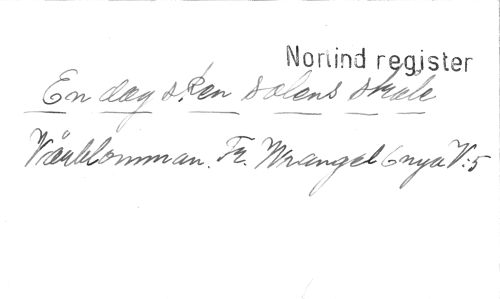 Norlind register
En dag sken solens skale
Vårblomman. Fr. Wrangel 6 nya V:5